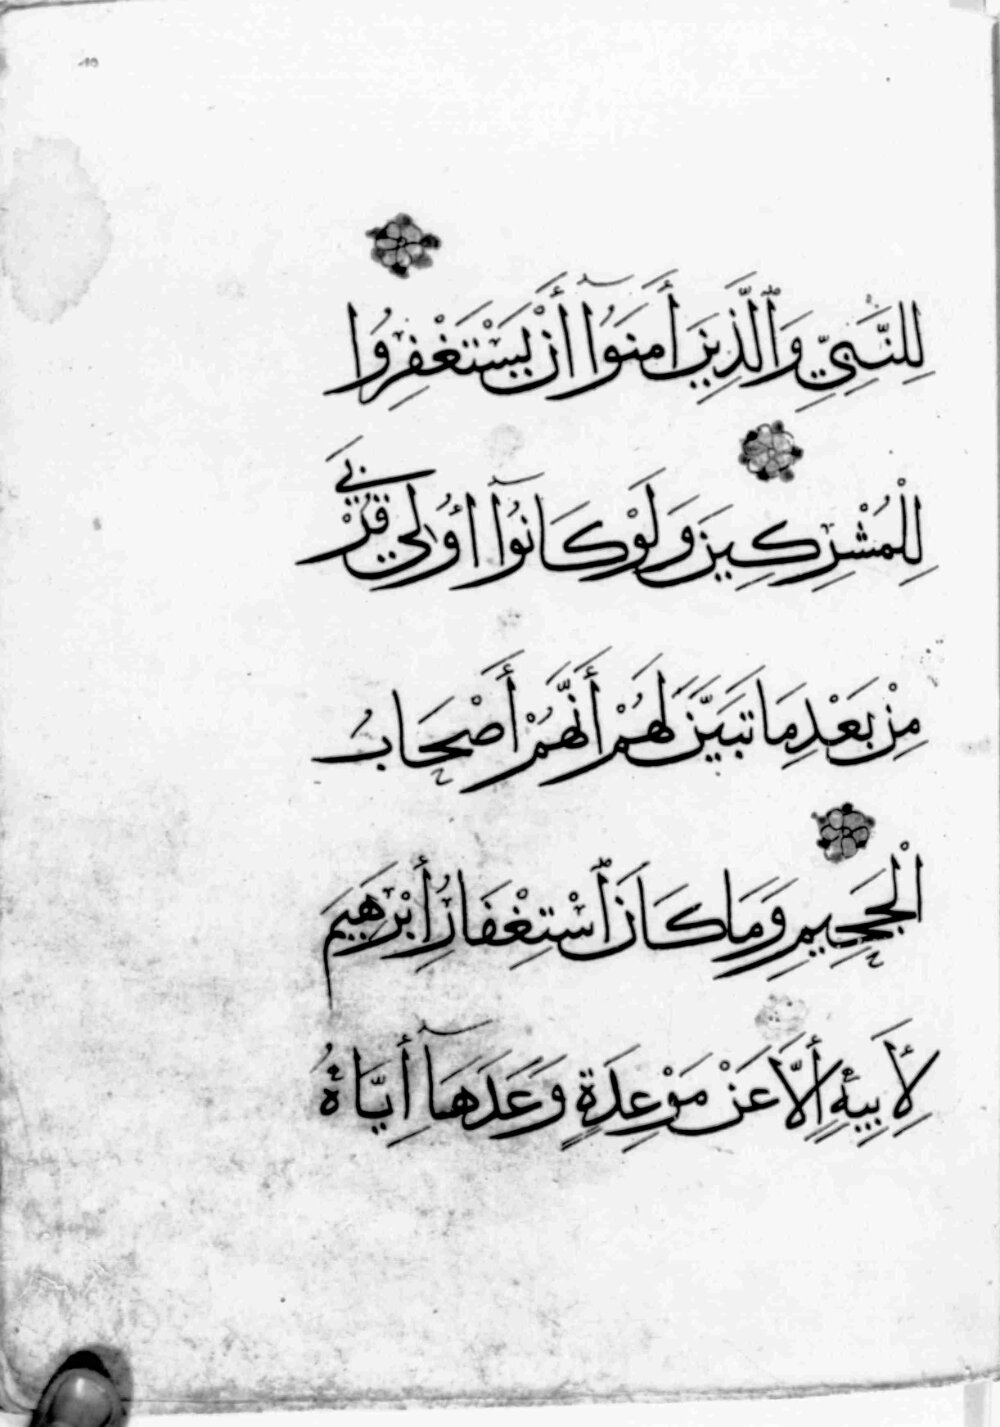 لِلنَّبِيِّ وَالَّذِينَ أَمَنُوٓا أَنْ يَسْتَغْفِرُوا
لِلْمُشْرِكِينَ وَلَوْ كَانُوٓا أُولِي قُرْبَى
مِنْ بَعْدِ مَا تَبَيَّنَ لَهُمْ أَنَّهُمْ أَصْحَابُ
الْجَحِيمِ وَمَا كَانَ ٱسْتِغْفَارُ إِبْرَهِيمَ
لِأَبِيهِ إِلَّا عَنْ مَوْعِدَةٍ وَعَدَهَآ إِيَّاهُ